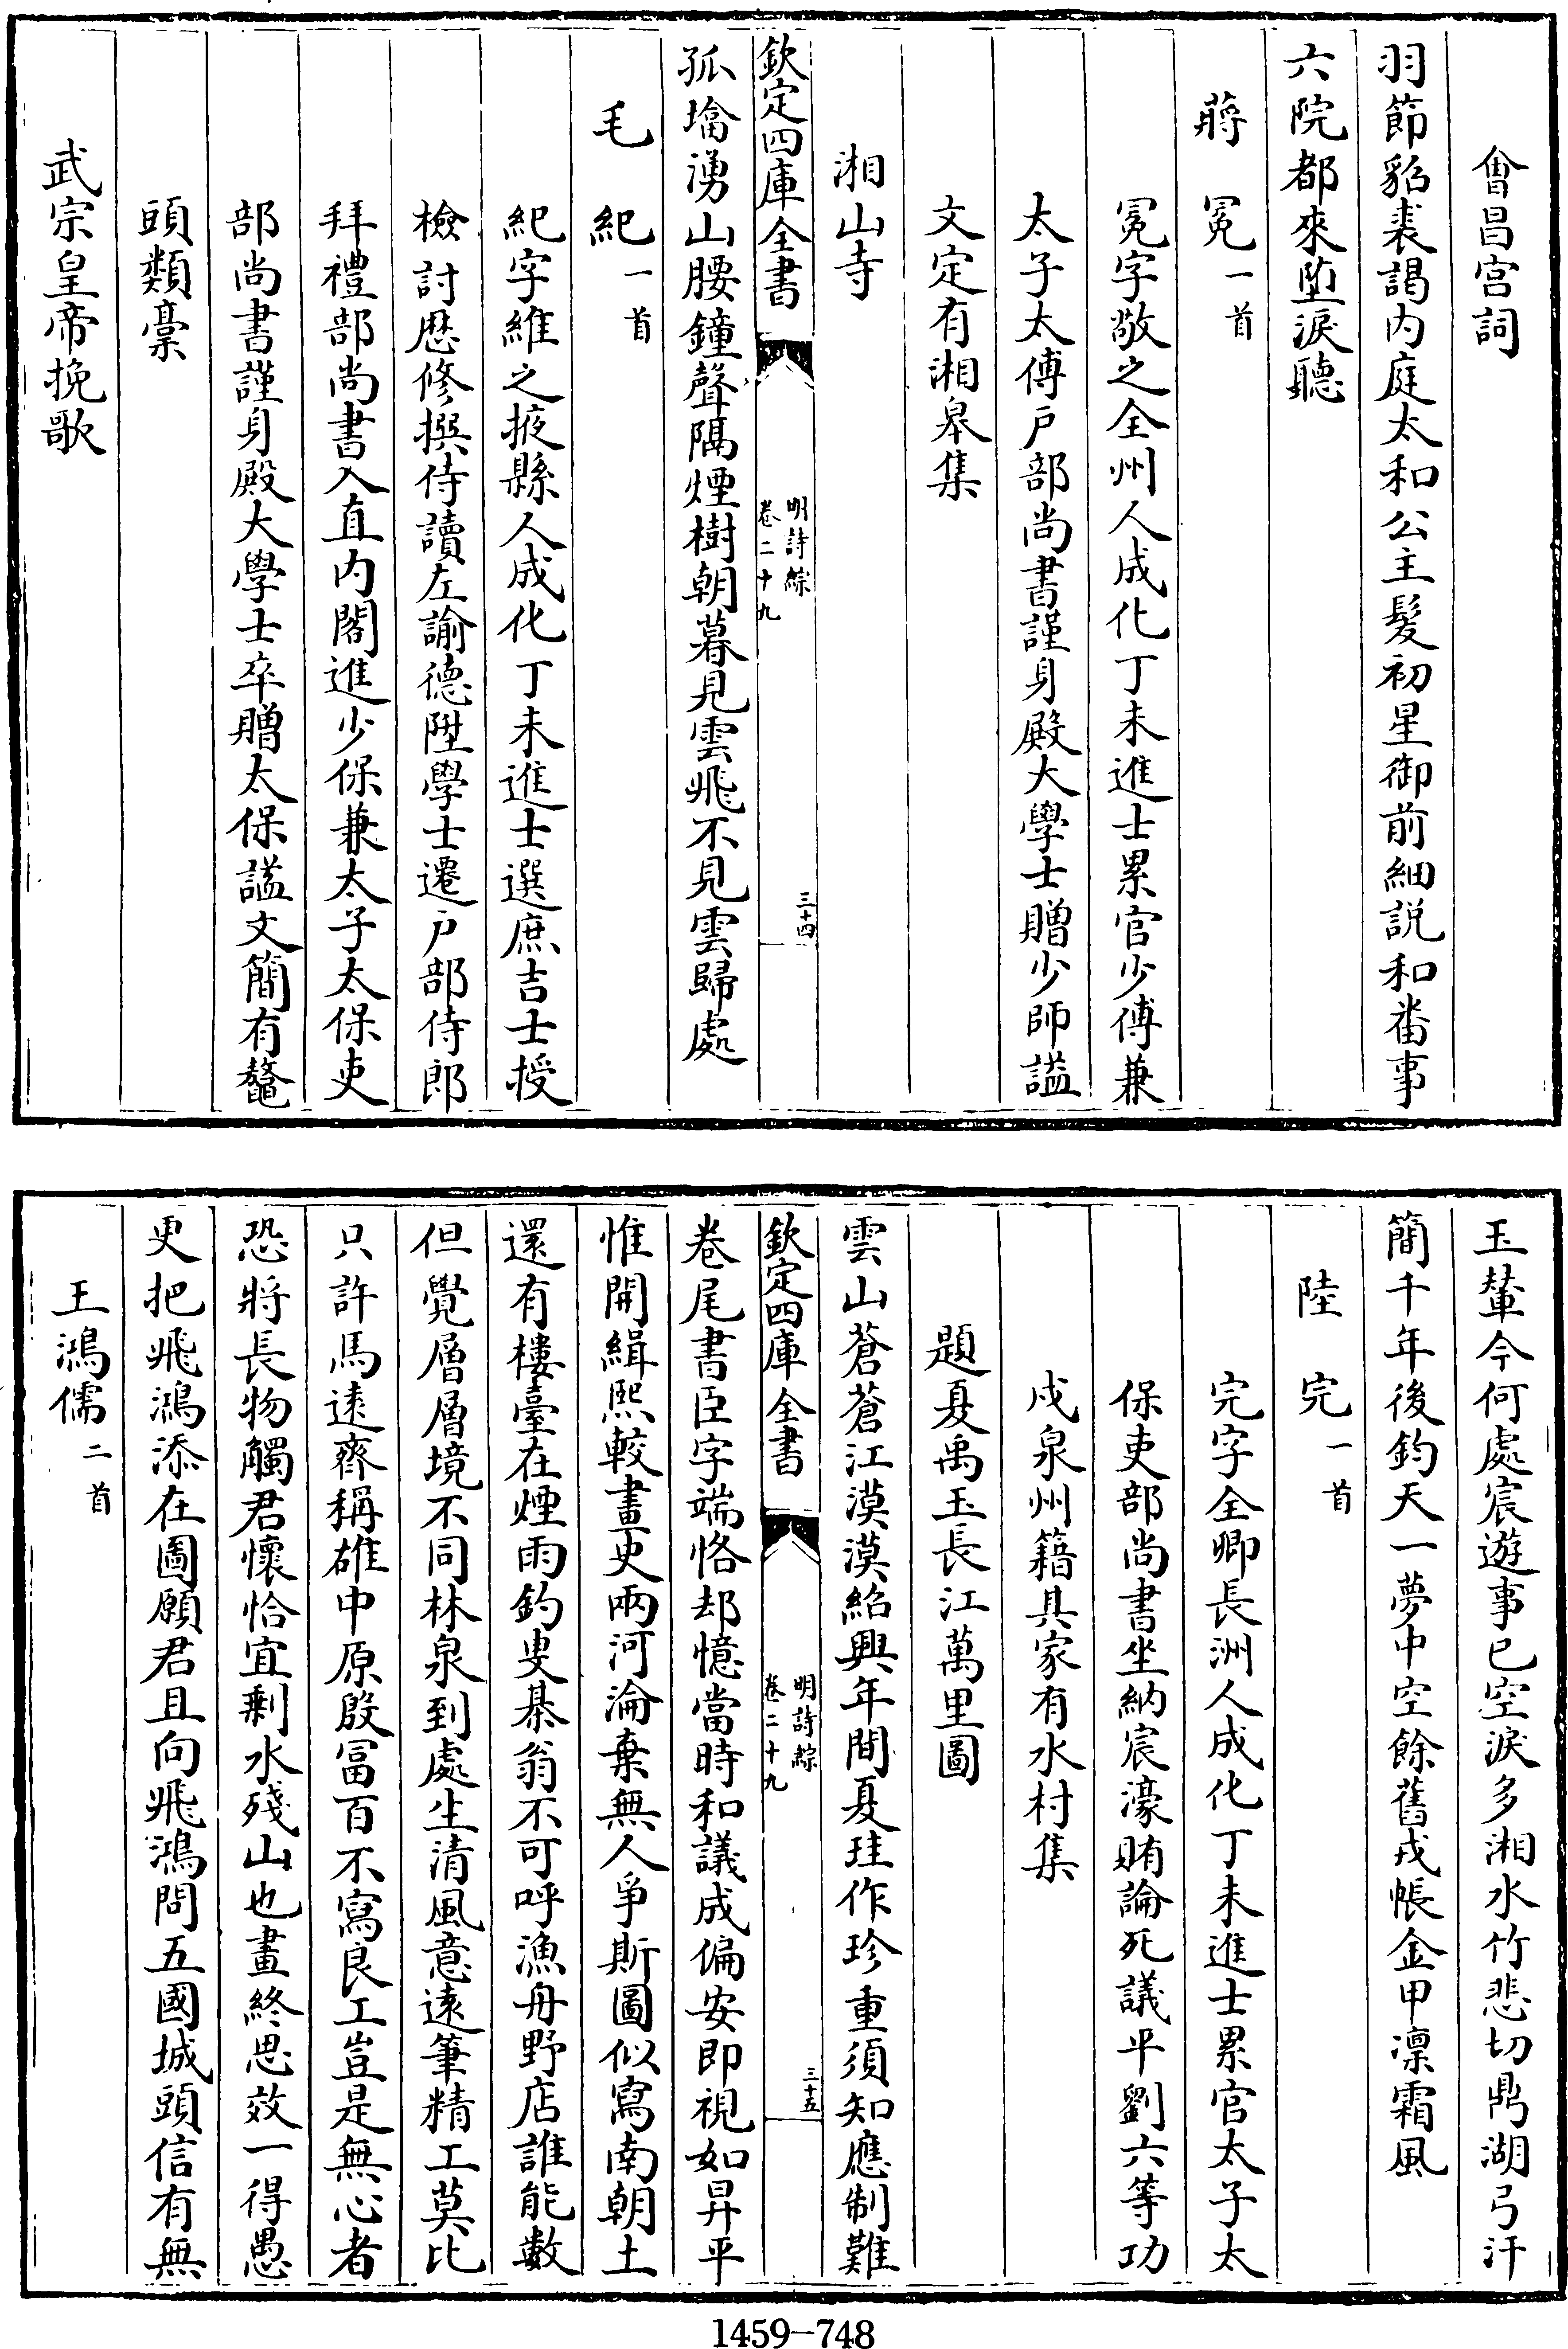 會昌宫詞
羽節貂裘謁内庭太和公主髮初星御前細説和番事
六院都來墮淚聽
蔣冕一首
冕字敬之全州人成化丁未進士累官少傅兼
太子太傅户部尚書謹身殿大學士贈少師謚
文定有湘皋集
湘山寺
欽定四庫全書
明詩綜
卷二十九
三十四
孤墖湧山腰鐘聲隔煙樹朝暮見雲飛不見雲歸處
毛紀一首
紀字維之掖縣人成化丁未進士選庶吉士授
檢討歴修撰侍讀左諭德陞學士遷户部侍郎
拜禮部尚書入直内閣進少保兼太子太保吏
部尚書謹身殿大學士卒贈太保謚文簡有鼇
頭類稾
武宗皇帝挽歌
玉輦今何處宸遊事已空淚多湘水竹悲切鼎湖弓汗
簡千年後鈞天一夢中空餘舊戎帳金甲凛霜風
陸完一首
完字全卿長洲人成化丁未進士累官太子太
保吏部尚書坐納宸濠賄論死議平劉六等功
戍泉州籍其家有水村集
題夏禹玉長江萬里圖
雲山蒼蒼江漠漠紹興年間夏珪作珍重須知應制難
欽定四庫全書
明詩綜
卷二十九
三十五
卷尾書臣字端恪却憶當時和議成偏安即視如昇平
惟開緝熙較畫史兩河淪棄無人爭斯圖似寫南朝土
還有樓臺在煙雨釣叟棊翁不可呼漁舟野店誰能數
但覺層層境不同林泉到處生清風意遠筆精工莫比
只許馬遠齊稱雄中原殷冨百不寫良工豈是無心者
恐將長物觸君懷恰宜剩水殘山也畫終思效一得愚
更把飛鴻添在圖願君且向飛鴻問五國城頭信有無
王鴻儒二首
1459-748